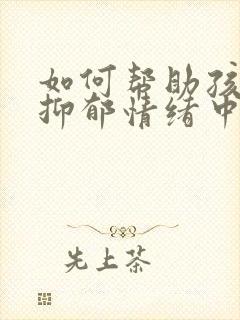 如何帮助孩
抑郁情绪中
先上茶